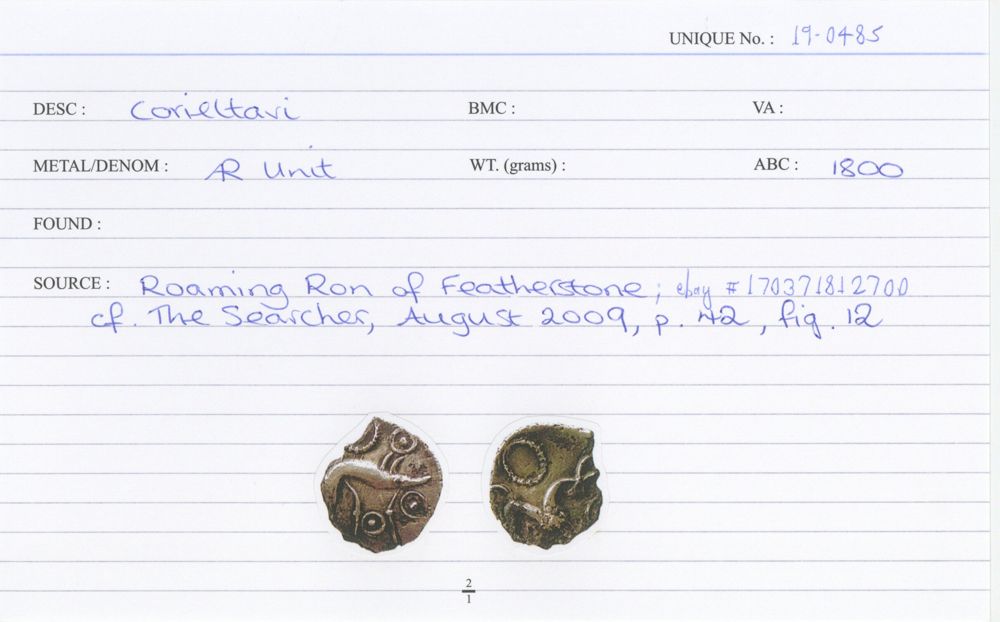 UNIQUE No. : 19-0485
DESC : Corieltavi BMC : VA :
METAL/DENOM : AR Unit WT. (grams) : ABC : 1800
FOUND :
SOURCE : Roaming Ron of Featherstone; ebay #170371812700
cf. The Searcher, August 2009, p. 42, fig. 12
2
1